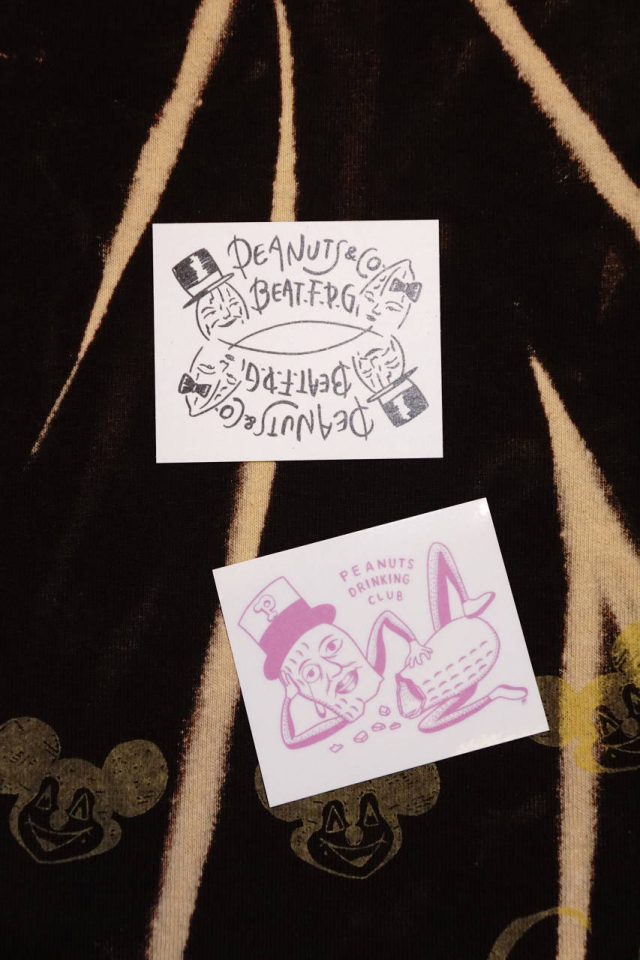 PEANUTS&CO
BEAT.F.P.G.
BEAT.F.P.G.
PEANUTS&CO
P
PEANUTS
DRINKING
CLUB